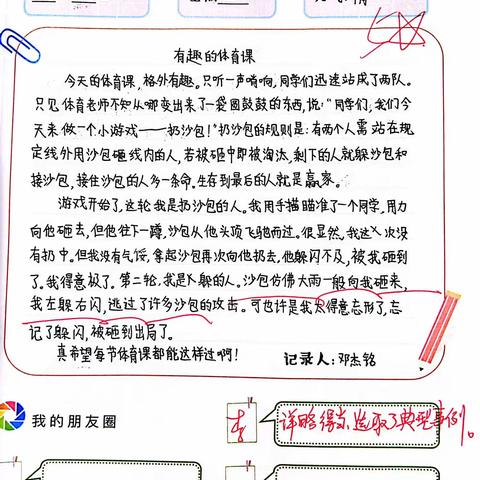 有趣的体育课
今天的体育课，格外有趣。只听一声哨响，同学们迅速站成了两队。
只见体育老师不知从哪变出来了一袋圆鼓鼓的东西，说："同学们，我们今
天来做一个小游戏——扔沙包！"扔沙包的规则是：有两个人需站在规
定线外用沙包砸线内的人，若被砸中即被淘汰，剩下的人就躲沙包和
接沙包，接住沙包的人多一条命。生存到最后的人就是赢家。
游戏开始了，这轮我是扔沙包的人。我用手描瞄准了一个同学，用力
向他砸去，但他往下一蹲，沙包从他头顶飞驰而过。很显然，我这次没
有扔中。但我没有气馁，拿起沙包再次向他扔去，他躲闪不及，被我砸到
了。我得意极了。第二轮，我是躲的人。沙包仿佛大雨一般向我砸来，
我左躲右闪，逃过了许多沙包的攻击。可也许是我太得意忘形了，忘
记了躲闪，被砸到出局了。
真希望每节体育课都能这样过啊！ 记录人：邓杰铭
我的朋友圈
详略得当，选取了典型事例。